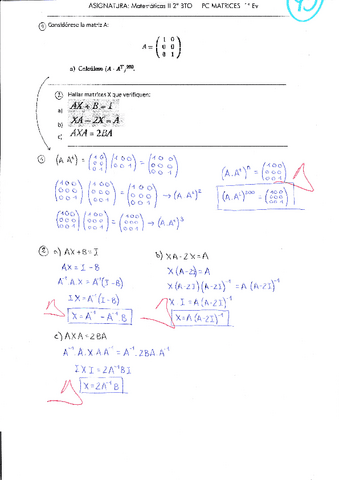 ASIGNATURA: Matemáticas II 2º BTO PC MATRICES 1ª Ev
① Considérese la matriz A:
A = ( 1 0 ; 0 0 ; 0 1 )
a) Calcúlese (A · Aᵀ)²⁰⁰.
② Hallar matrices X que verifiquen:
a) AX + B = I
b) XA − 2X = A
c) AXA = 2BA
① (A·Aᵗ) = (1 0 0 ; 0 0 0 ; 0 0 1) (1 0 0 ; 0 0 0 ; 0 0 1) = (1 0 0 ; 0 0 0 ; 0 0 1)
(A·Aᵗ)ⁿ = (1 0 0 ; 0 0 0 ; 0 0 1)
(1 0 0 ; 0 0 0 ; 0 0 1) (1 0 0 ; 0 0 0 ; 0 0 1) = (1 0 0 ; 0 0 0 ; 0 0 1) → (A·Aᵗ)²
(A·Aᵗ)²⁰⁰ = (1 0 0 ; 0 0 0 ; 0 0 1)
(1 0 0 ; 0 0 0 ; 0 0 1) (1 0 0 ; 0 0 0 ; 0 0 1) = (1 0 0 ; 0 0 0 ; 0 0 1) → (A·Aᵗ)³
② a) AX + B = I
AX = I − B
A⁻¹·A·X = A⁻¹(I − B)
IX = A⁻¹(I − B)
X = A⁻¹ − A⁻¹B
b) XA − 2X = A
X(A − 2I) = A
X(A − 2I)(A − 2I)⁻¹ = A(A − 2I)⁻¹
X·I = A(A − 2I)⁻¹
X = A(A − 2I)⁻¹
c) AXA = 2BA
A⁻¹·A·X·A·A⁻¹ = A⁻¹·2BA·A⁻¹
IXI = 2A⁻¹BI
X = 2A⁻¹B